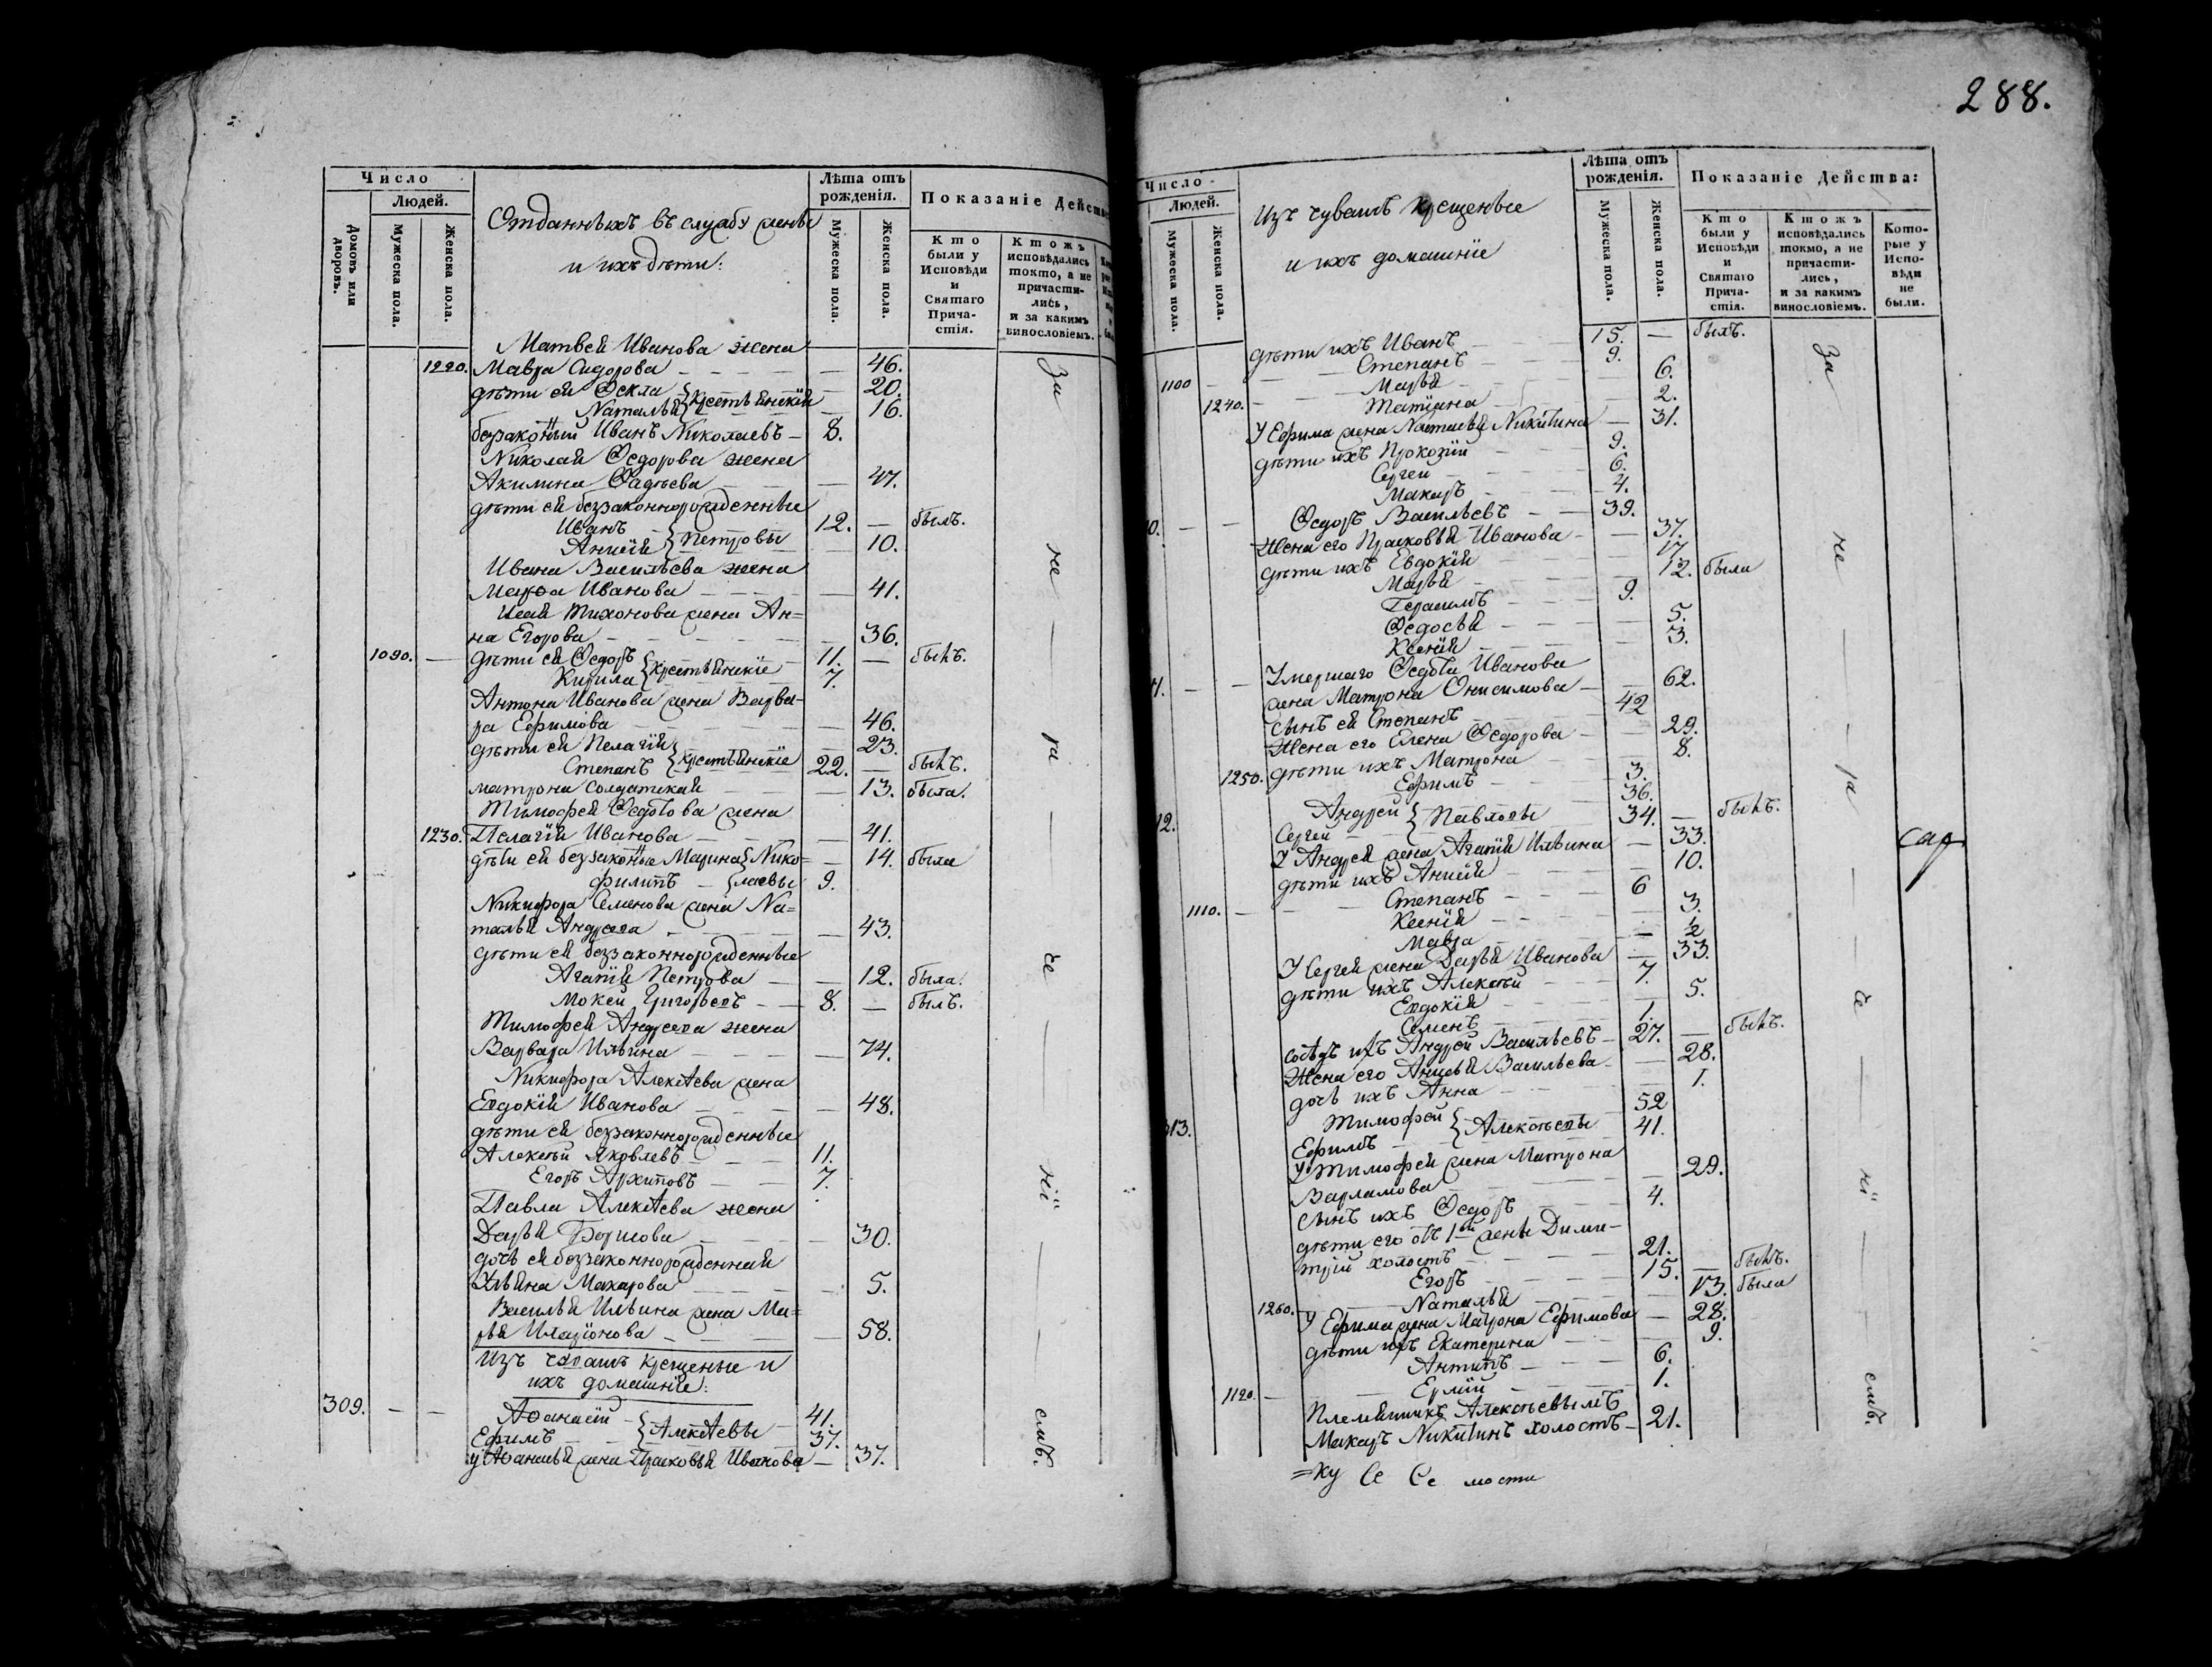 288.
Число
Людей.
Домовъ или дворовъ.
Мужеска пола.
Женска пола.
Отданныхъ въ службу жены
и ихъ дѣти:
Лѣта отъ рожденія.
Мужеска пола.
Женска пола.
Показаніе Дейст
Кто были у Исповѣди и Святаго Прича-стія.
Ктожъ исповѣдались токмо, а не причасти-лись, и за какимъ винословіемъ.
Матвея Иванова жена
1220. Мавра Сидорова — 46.
дѣти ея Ѳекла — 20.
Наталья } крестьянскія — 16.
беззаконный Иванъ Николаевъ — 8.
Николая Ѳедорова жена
Акилина Фадѣева — 47.
дѣти ея беззаконнорожденные
Иванъ 12. — былъ.
Анисія } Петровы — 10.
Ивана Васильева жена
Марѳа Иванова — 41.
Исая Тихонова жена Ан=
на Егорова — 36.
1090. — дѣти ея Ѳедоръ 11. — былъ.
Кирила } крестьянскіе 7.
Антона Иванова жена Варва-
ра Ефимова — 46.
дѣти ея Пелагія — 23.
Степанъ } крестьянскіе 22. — былъ.
матрона солдатская — 13. была.
Тимофея Ѳедотова жена
1230. Пелагія Иванова — 41.
дѣти ея беззаконные Марина } Нико= — 14. была
филипъ — } лаевы 9.
Никифора Семенова жена На=
талья Андреева — 43.
дѣти ея беззаконнорожденные
Агапія Петрова — 12. была.
Мокей Григорьевъ — 8. — былъ.
Тимофея Андреева жена
Варвара Ильина — 74.
Никифора Алексѣева жена
Евдокія Иванова — 48.
дѣти ея беззаконнорожденные
Алексѣй Яковлевъ — 11.
Егоръ Архиповъ — 7.
Павла Алексѣева жена
Дарья Борисова — 30.
дочь ея беззаконнорожденная
Ульяна Макарова — 5.
Василья Ильина жена Ма=
рья Иларіонова — 58.
Изъ чувашъ крещеные и
ихъ домашніе:
309. — — Аѳанасій — 41.
Ефимъ — } Алексѣевы 37.
у Аѳанасья жена Прасковья Иванова — 37.
За не — ра — че — ніи — емъ.
Число
Людей.
Мужеска пола.
Женска пола.
Изъ чувашъ крещеные
и ихъ домашніе
Лѣта отъ рожденія.
Мужеска пола.
Женска пола.
Показаніе Действа:
Кто были у Исповѣди и Святаго Прича-стія.
Ктожъ исповѣдались токмо, а не причасти-лись, и за какимъ винословіемъ.
Кото-рые у Испо-вѣди не были.
дѣти ихъ Иванъ 15. — былъ.
Степанъ 9.
1100 — Марья 6.
1240. — Татіана — 2.
У Ефима жена Наталья Никитина — 31.
дѣти ихъ Прокопій 9.
Сергей 6.
Макаръ 4.
0. — — Ѳедоръ Васильевъ — 39.
Жена его Прасковья Иванова — 37.
дѣти ихъ Евдокія 17.
Марья — 12. были
Герасимъ 9.
Ѳедосья — 5.
Ксенія — 3.
1. — — Умершаго Ѳедота Иванова
жена Матрона Онисимова — 62.
сынъ ея Степанъ 42
Жена его Елена Ѳедорова — 29.
1250. дѣти ихъ Матрона — 8.
Ефимъ 3.
12. Андрей 36.
Сергей } Павловы 34. — былъ.
У Андрея жена Агапія Ильина — 33.
дѣти ихъ Анисія — 10.
1110. — Степанъ 6
Ксенія — 3.
Мавра — ½
У Сергея жена Дарья Иванова — 33.
дѣти ихъ Алексѣй 7.
Евдокія — 5.
Семенъ 1.
сосѣдъ ихъ Андрей Васильевъ — 27. — былъ.
Жена его Анисья Васильева — 28.
дочь ихъ Анна — 1.
313. Тимофей 52
Ефимъ } Алексѣевы 41.
У Тимофея жена Матрона
Варламова — 29.
сынъ ихъ Ѳедоръ 4.
дѣти его отъ 1й жены Дими-
трій холостъ 21. — былъ.
Егоръ 15.
1260. — Наталья — 13. была
У Ефима жена Матрона Ефимова — 28.
дѣти ихъ Екатерина — 9.
Антипъ 6.
1120. — Ермій 1.
Племянникъ Алексѣевымъ
Макаръ Никитинъ холостъ — 21.
За не — ра — че — ніи — емъ.
=ку Се Се мости